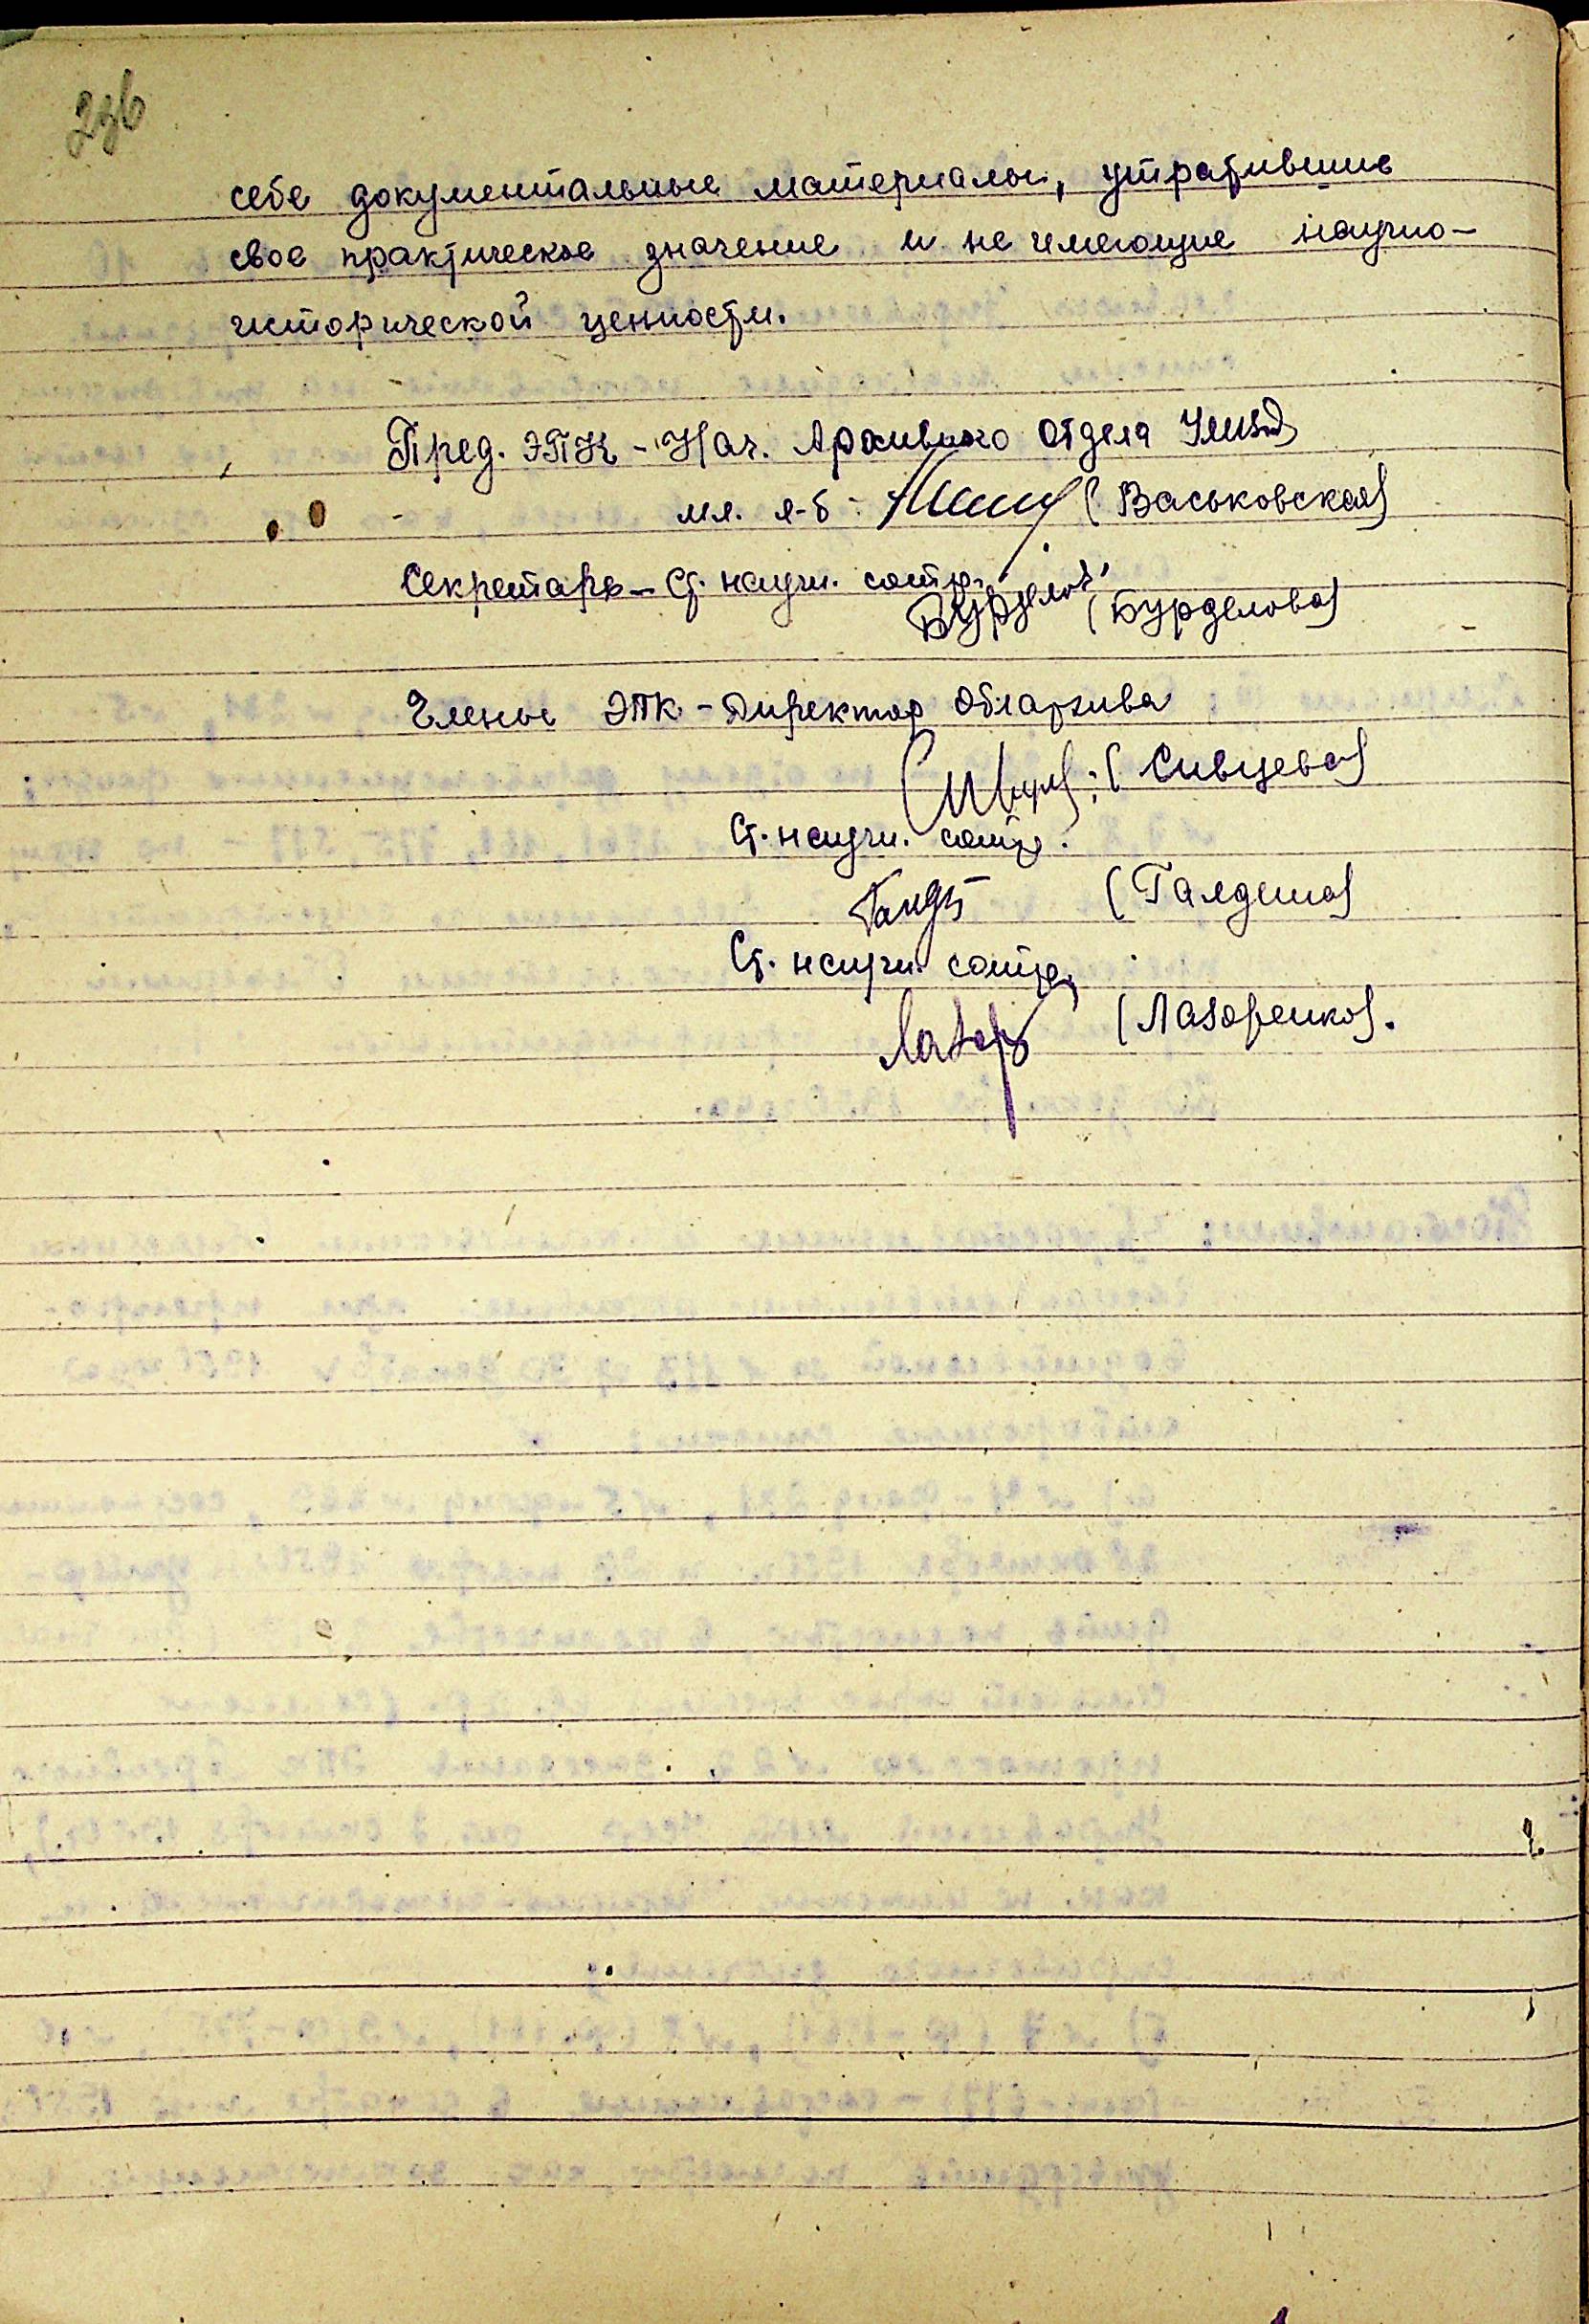 236
себе документальные материалы, утратившие
свое практическое значение и не имеющие научно-
исторической ценности.
Пред. ЭПК - Нач. Архивного отдела УМВД
мл. л-т (Васьковская)
Секретарь - Ст. научн. сотр.
Бурделов (Бурделова)
Члены ЭПК - Директор Облархива
(Сивцева)
Ст. научн. сотр.
(Галдена)
Ст. научн. сотр.
Лазар (Лазоренко).